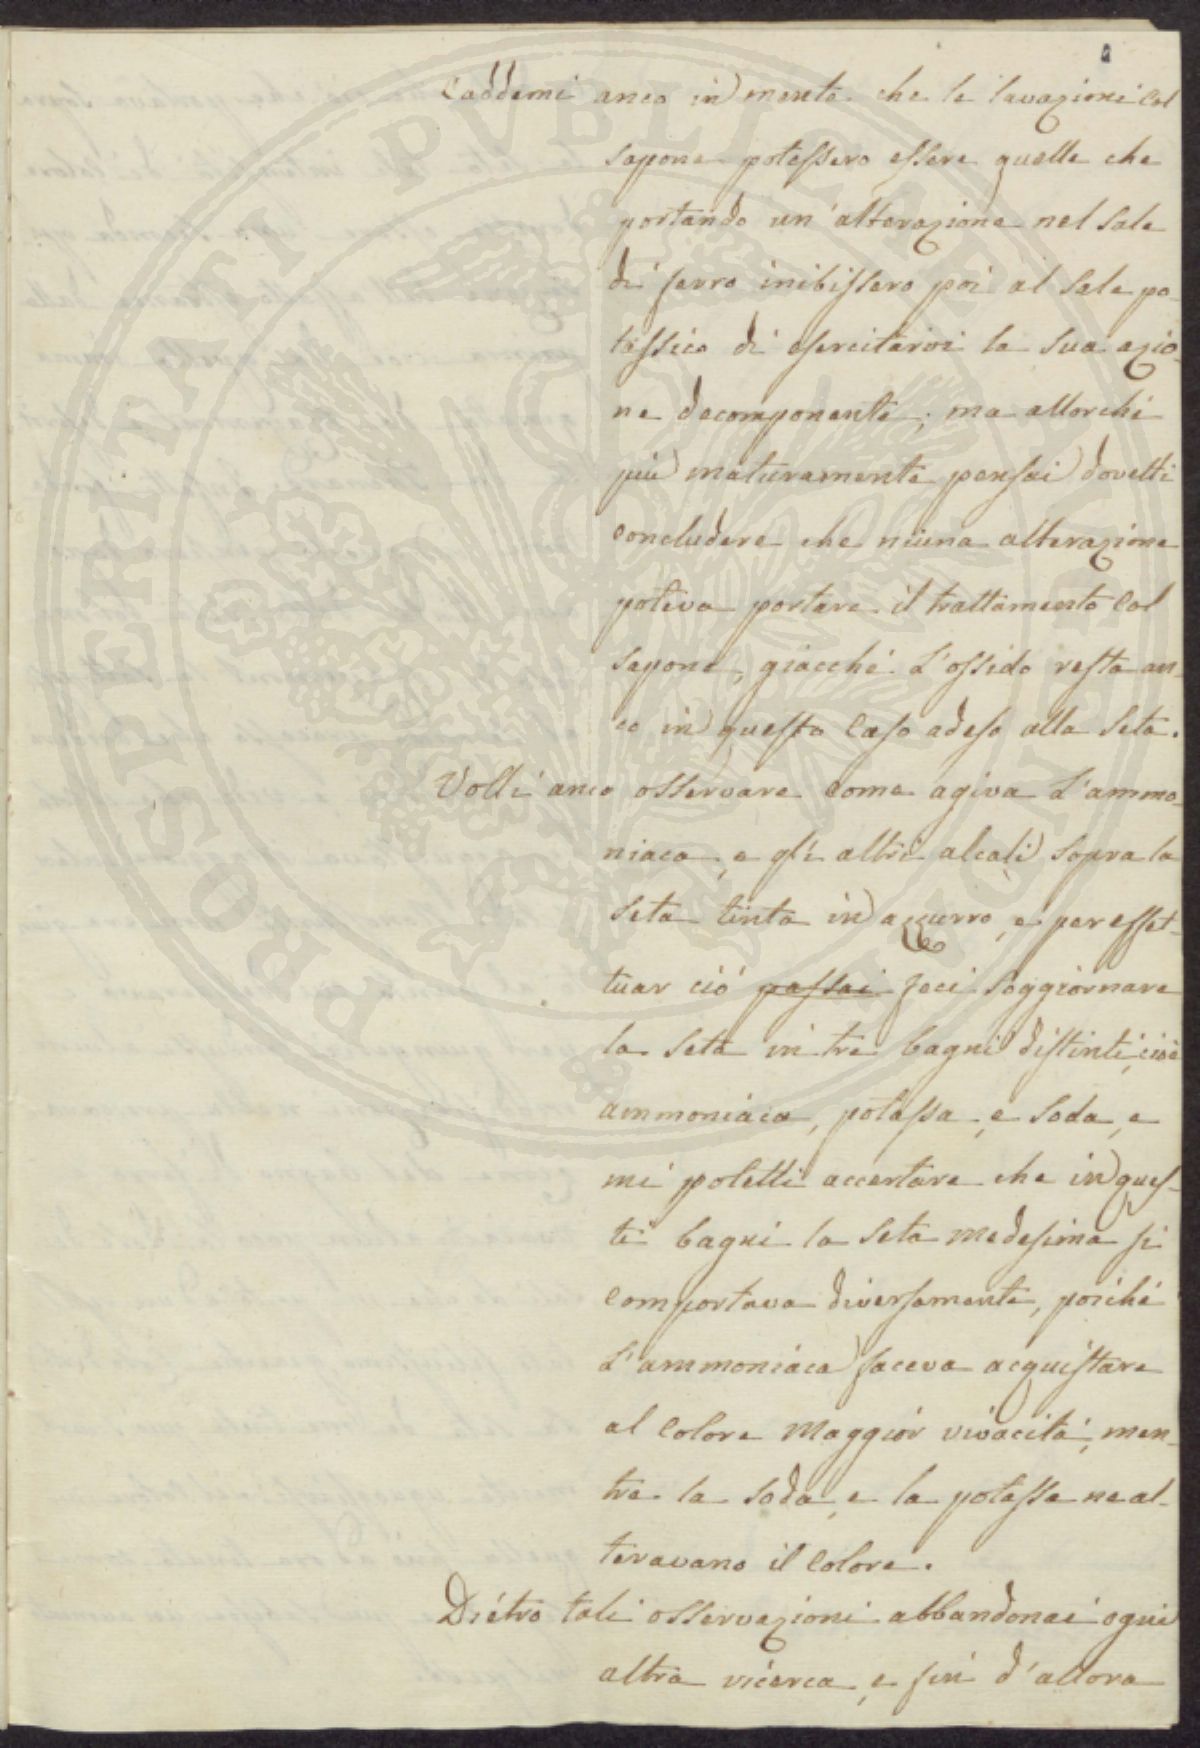 Caddemi anco in mente che le lavazioni col
sapone potessero essere quelle che
portando un'alterazione nel sale
di ferro inibissero poi al sale po-
tassico di esercitarvi la sua azio-
ne decomponente; ma allorché
più maturamente pensai dovetti
concludere che niuna alterazione
poteva portare il trattamento col
sapone, giacché l'ossido resta an-
co in questo caso adeso alla seta.
Volli anco osservare come agiva l'ammo-
niaca, e gli altri alcali sopra la
seta tinta in azzurro, e per effet-
tuar ciò passai feci soggiornare
la seta in tre bagni distinti, cioè
ammoniaca, potassa, e soda, e
mi potetti accertare che in ques-
ti bagni la seta medesima si
comportava diversamente, poiché
l'ammoniaca faceva acquistare
al colore maggior vivacità, men-
tre la soda, e la potassa ne al-
teravano il colore.
Diétro tali osservazioni abbandonai ogni
altra ricerca, e fin d'allora
PROSPERITATI PUBLICAE AUGENDAE